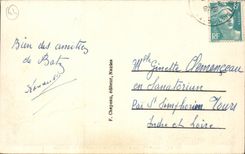 Bien des amitiés
de Batz
F. Chapeau, éditeur, Nantes
Mlle Ginette Clemenceau
en Sanatorium
par St Symphorien Tours
Indre et Loire